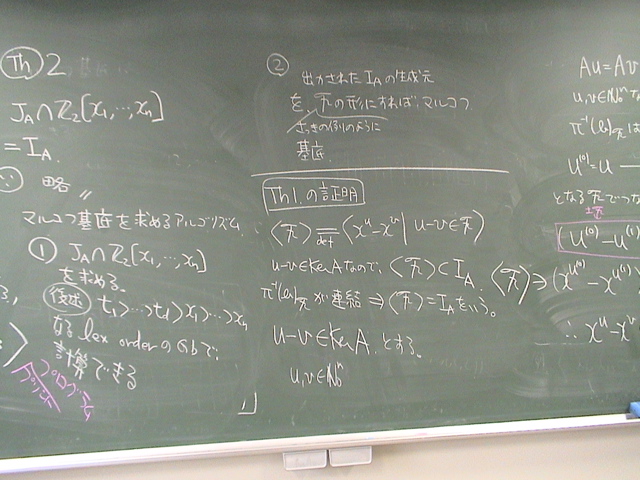 Th 2
J_A ∩ ℤ_2[x_1, ‥, x_n]
= I_A.
∵ 略 〃
マルコフ基底を求めるアルゴリズム.
① J_A ∩ ℤ_2[x_1, ‥, x_n]
を求める.
後述 t_1 > ‥ > t_d > x_1 > ‥ > x_n
なる lex order の Gb で.
計算できる
② 出力された I_A の生成元
を、𝓕の形にすればマルコフ
さっきの例のように
基底.
Th 1. の証明
⟨𝓕⟩ =_def ⟨x^u − x^v | u−v ∈ 𝓕⟩
u−v ∈ Ker A なので, ⟨𝓕⟩ ⊂ I_A.
が連結 ⇒ ⟨𝓕⟩ = I_A をいう。
u−v ∈ Ker A. とする。
u, v ∈ ℕ_0^n
Au = Av
u, v ∈ ℕ_0^n
U^(0) = u
となる 𝓕 で
±𝓕
(U^(0) − U^(1)
⟨𝓕⟩ ∋ (x^{U^(0)} − x^{U^(1)}
∴ x^u − x^v